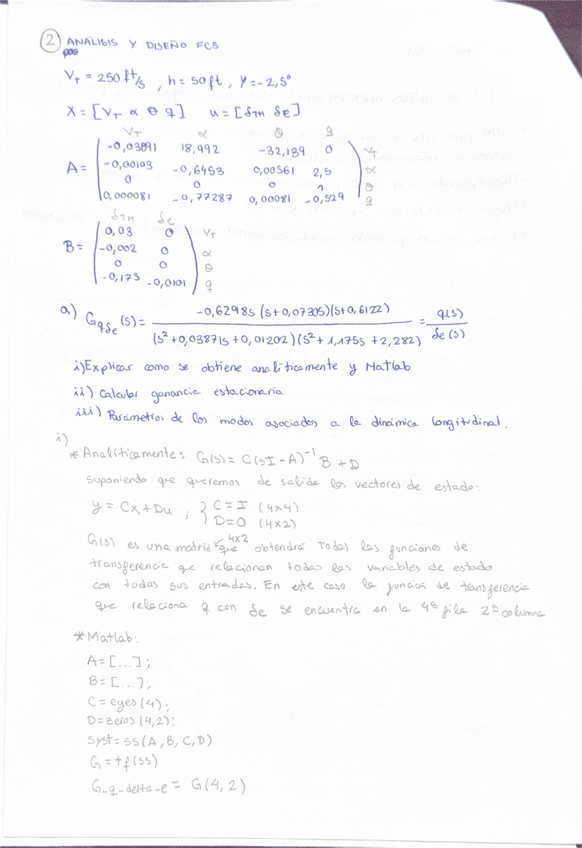 ② ANÁLISIS Y DISEÑO FCS
V_T = 250 ft/s , h = 50 ft , γ = -2,5°
X = [V_T α θ q] u = [δ_TH δ_E]
V_T α θ q
A = ( -0,03891 18,992 -32,139 0 ) V_T
-0,00103 -0,6453 0,00561 2,5 α
0 0 0 1 θ
0,000081 -0,77287 0,00081 -0,529 q
δ_TH δ_e
B = ( 0,03 0 ) V_T
-0,002 0 α
0 0 θ
-0,175 -0,0101 q
a) G_qδe(s) = -0,6298s (s+0,07305)(s+0,6122) / (s²+0,0387s+0,01202)(s²+1,175s+2,282) = q(s) / δe(s)
i) Explicar como se obtiene analíticamente y Matlab
ii) Calcular ganancia estacionaria
iii) Parámetros de los modos asociados a la dinámica longitudinal.
i)
* Analíticamente: G(s) = C(sI-A)⁻¹ B + D
Suponiendo que queremos de salida los vectores de estado:
y = Cx + Du ; } C = I (4x4)
D = 0 (4x2)
4x2
G(s) es una matriz que obtendrá todas las funciones de
transferencia que relacionan todas las variables de estado
con todas sus entradas. En este caso la función de transferencia
que relaciona q con δe se encuentra en la 4ª fila 2ª columna
* Matlab:
A = [...];
B = [...];
C = eyes(4);
D = zeros(4,2);
Syst = ss(A, B, C, D)
G = tf(ss)
G_q_delta_e = G(4,2)